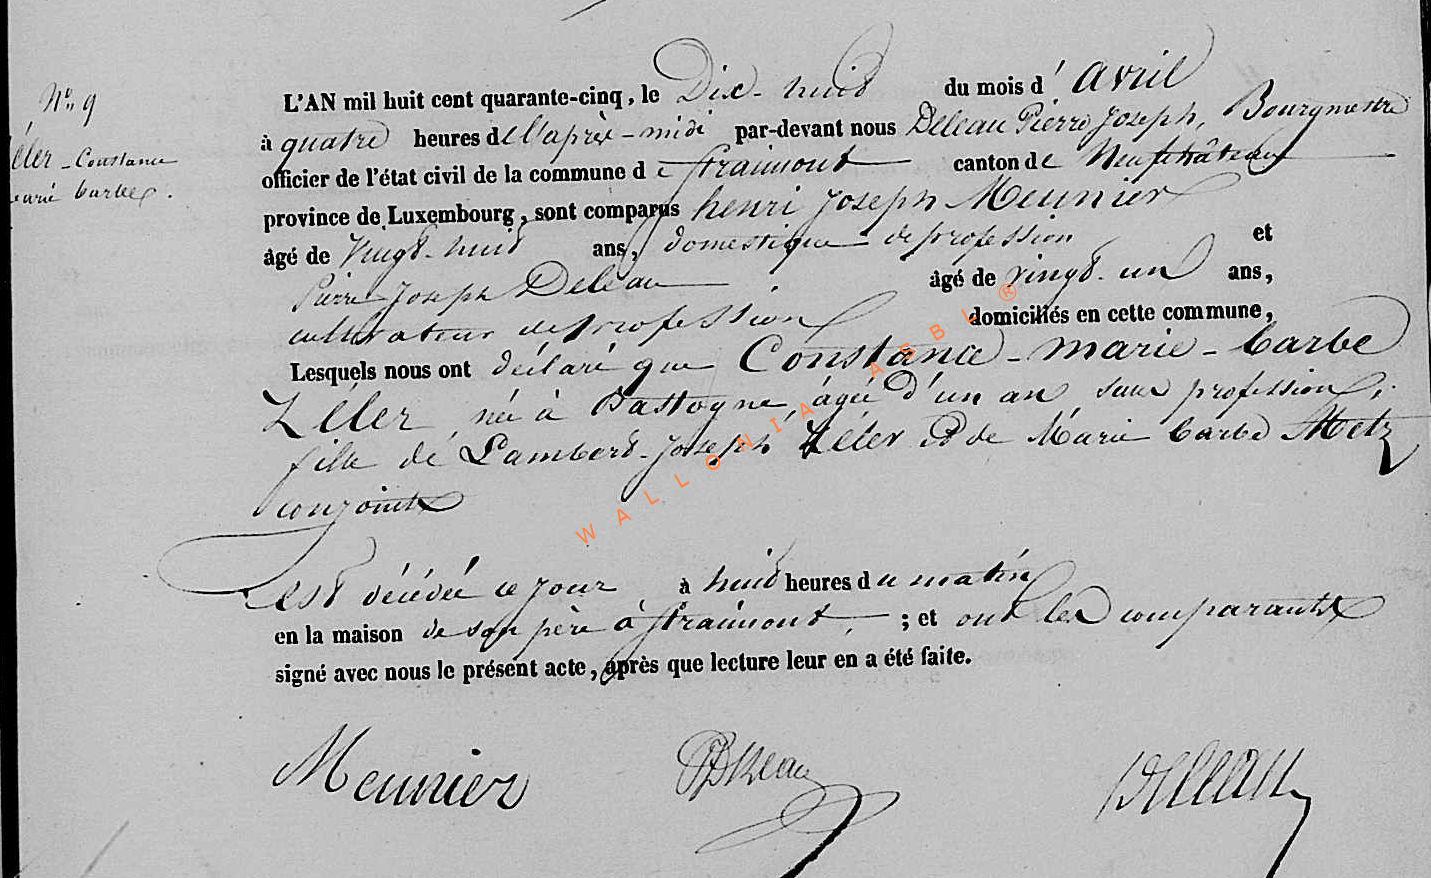 N° 9
Léler - Constance
marie barbe.
L'AN mil huit cent quarante-cinq, le Dix-huit du mois d'avril
à quatre heures de l'après-midi par-devant nous Deleau Pierre Joseph, Bourgmestre
officier de l'état civil de la commune de straimont canton de Neufchâteau
province de Luxembourg, sont comparus henri Joseph Meunier
âgé de Vingt-huit ans, domestique de profession et
Pierre Joseph Deleau âgé de vingt-un ans,
cultivateur de profession domiciliés en cette commune,
Lesquels nous ont déclaré que Constance-marie-barbe
Léler, née à Bastogne, âgée d'un an sans profession,
fille de Lambert-Joseph Léler et de Marie barbe Metz
conjoints
est décédée ce jour à huit heures du matin
en la maison de son père à straimont, ; et ont les comparants
signé avec nous le présent acte, après que lecture leur en a été faite.
WALLONIA ASBL ®
Meunier PJDeleau Deleau